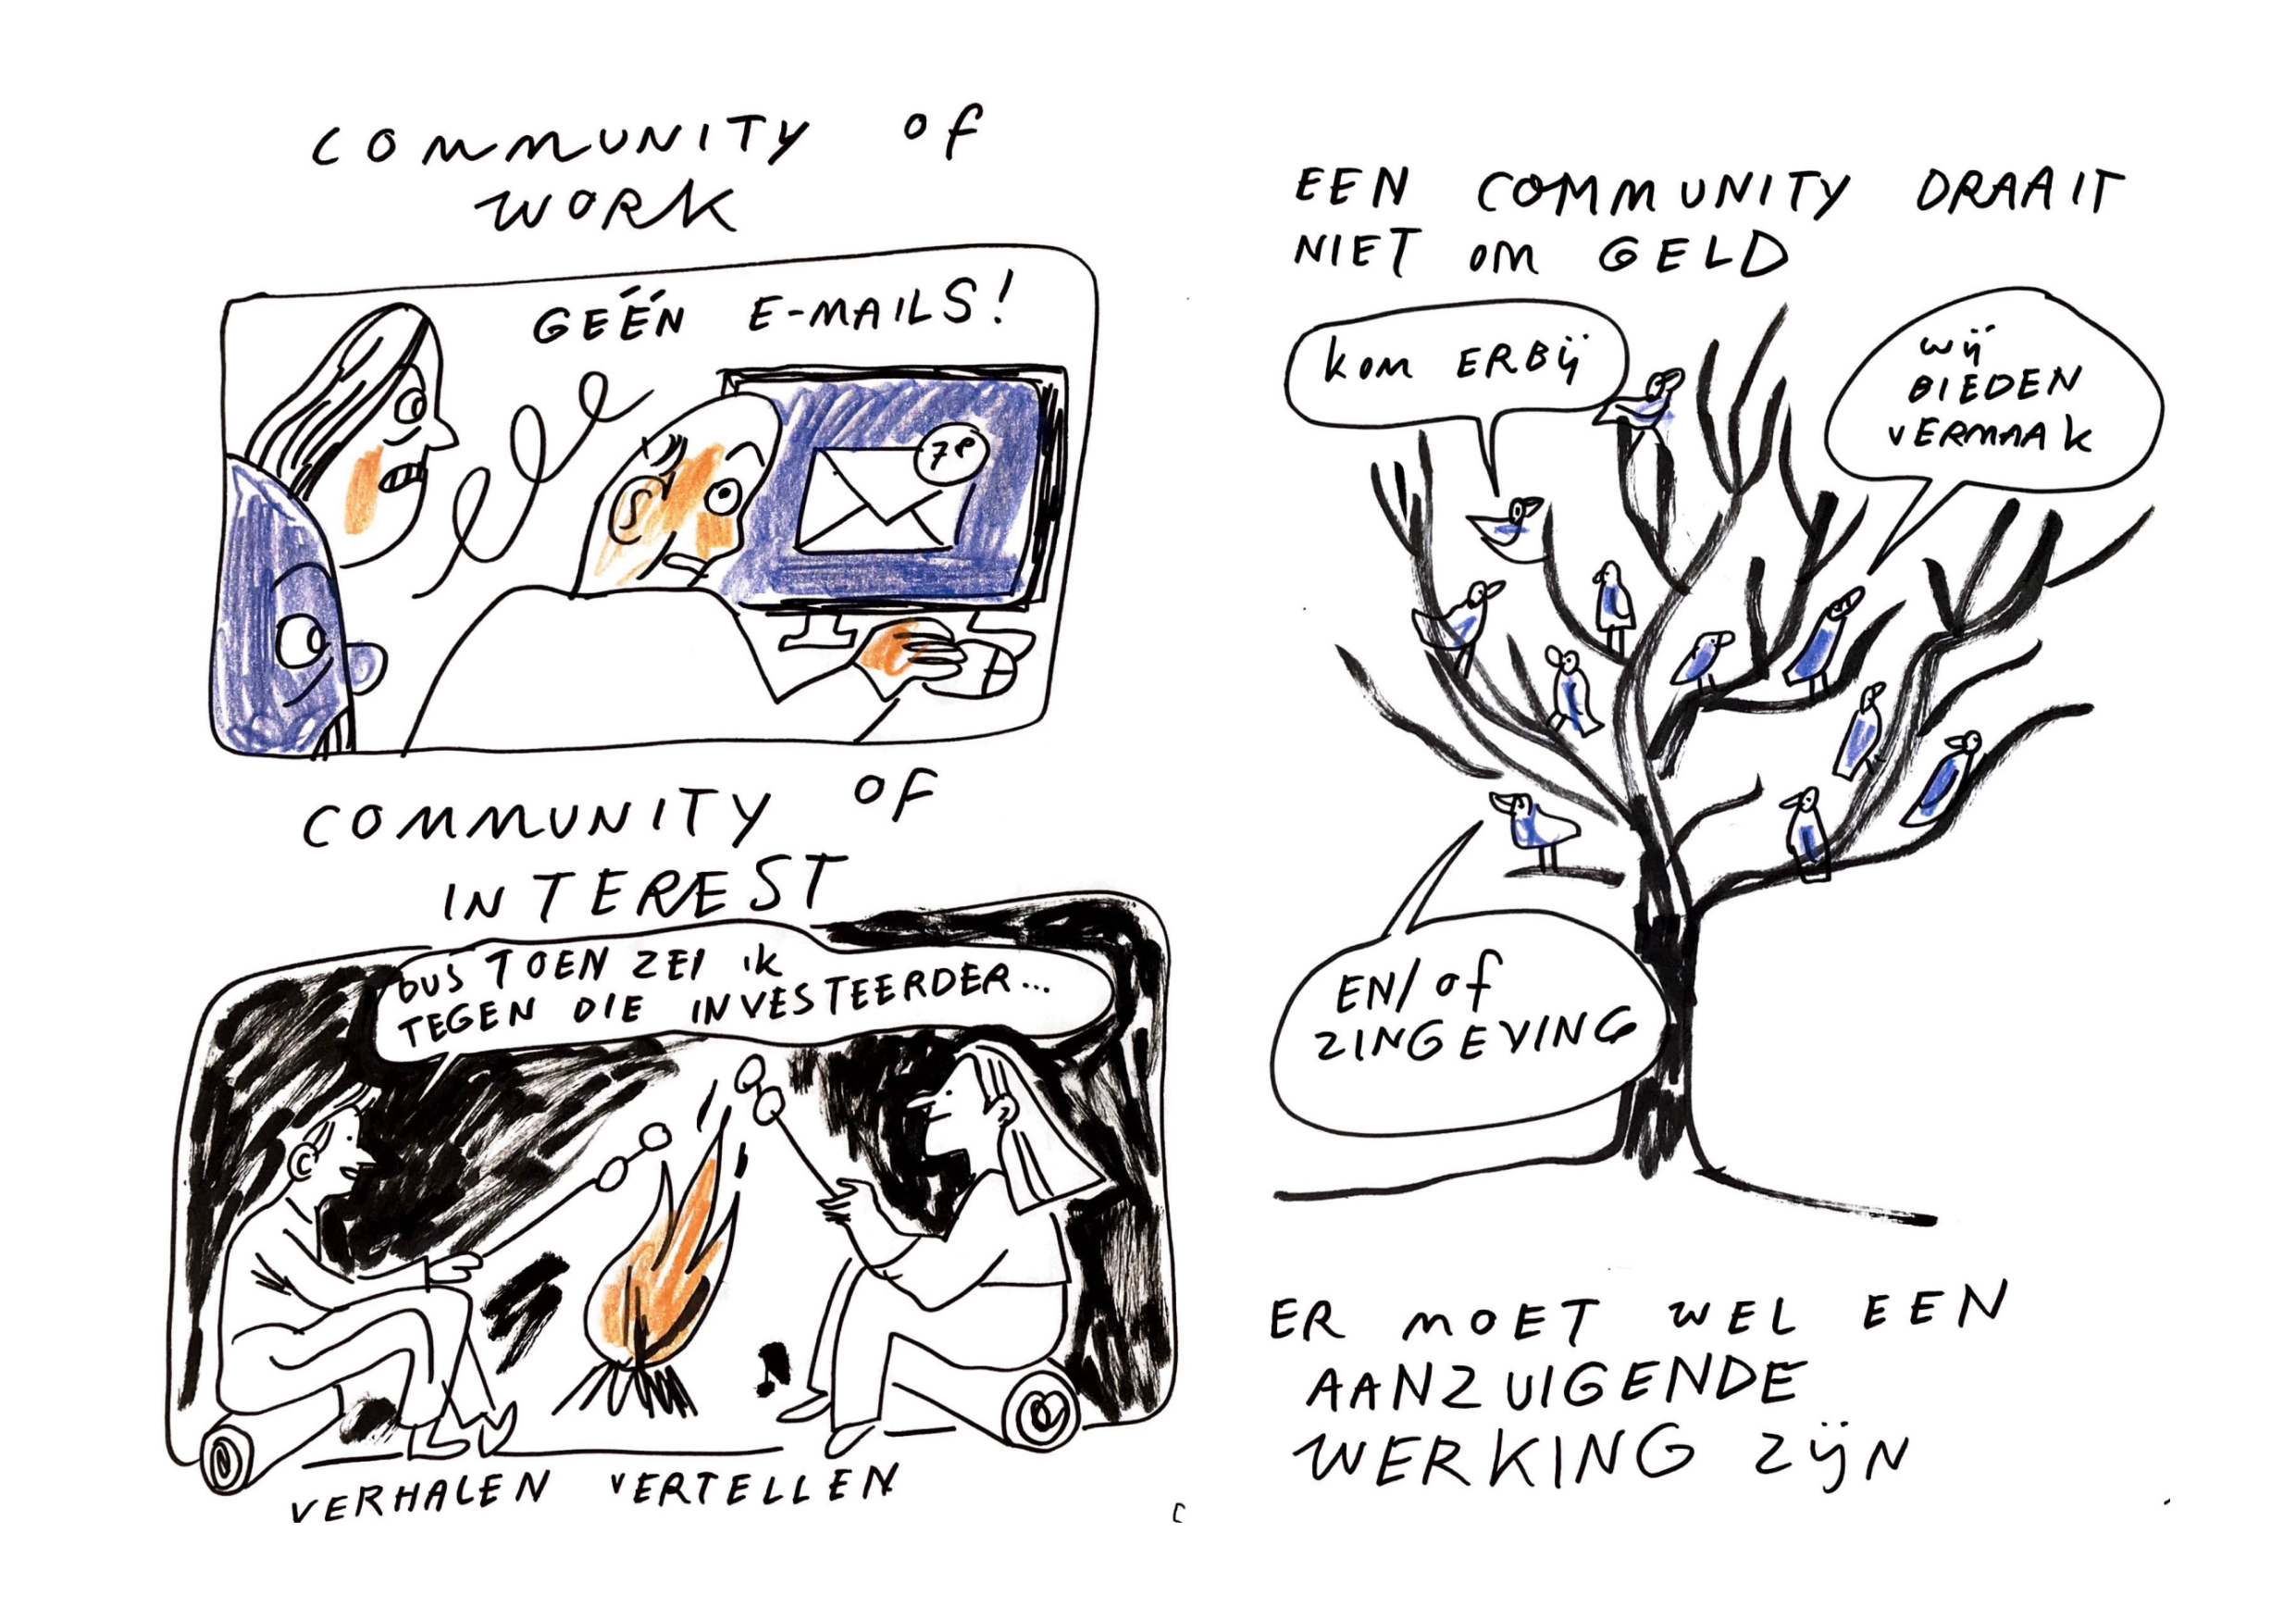 COMMUNITY OF
WORK
GEÉN E-MAILS!
COMMUNITY OF
INTEREST
DUS TOEN ZEI IK
TEGEN DIE INVESTEERDER...
VERHALEN VERTELLEN
EEN COMMUNITY DRAAIT
NIET OM GELD
KOM ERBIJ
WIJ
BIEDEN
VERMAAK
EN/OF
ZINGEVING
ER MOET WEL EEN
AANZUIGENDE
WERKING ZIJN